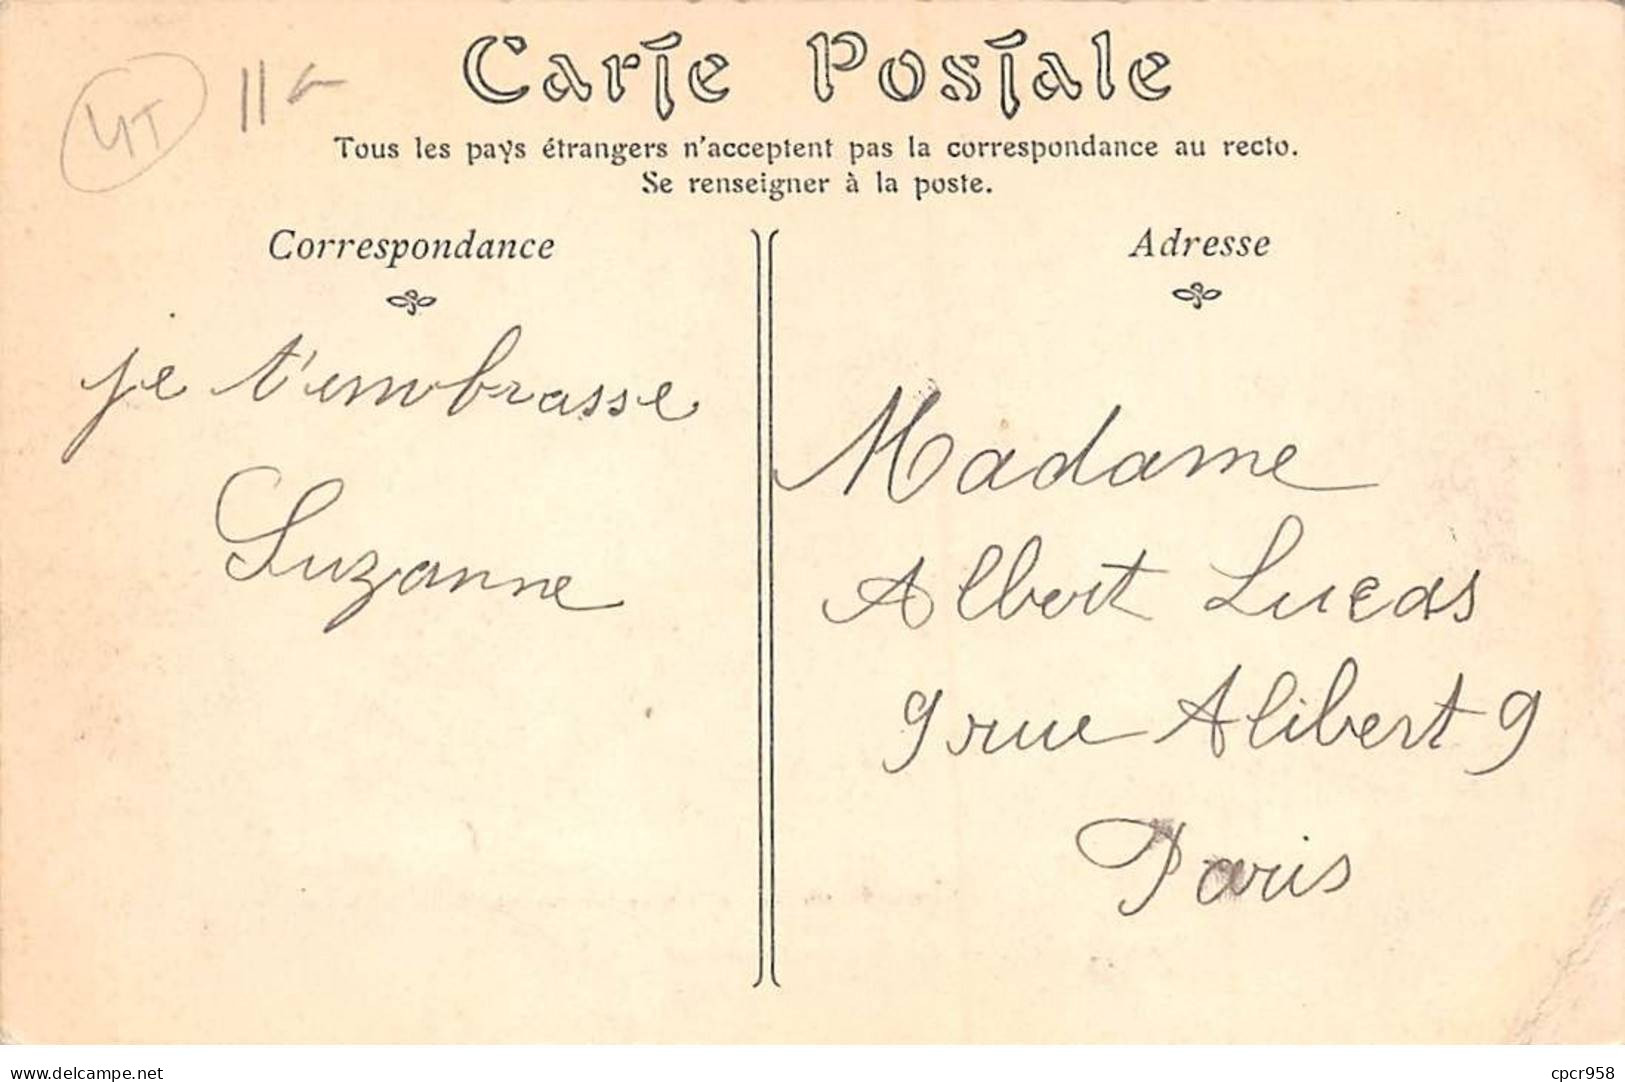 YT
Carte Postale
Tous les pays étrangers n'acceptent pas la correspondance au recto.
Se renseigner à la poste.
Correspondance
je t'embrasse
Suzanne
Adresse
Madame
Albert Lucas
9 rue Alibert 9
Paris
www.delcampe.net
cpcr958